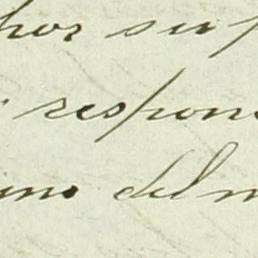 por su p
respon
ino del m